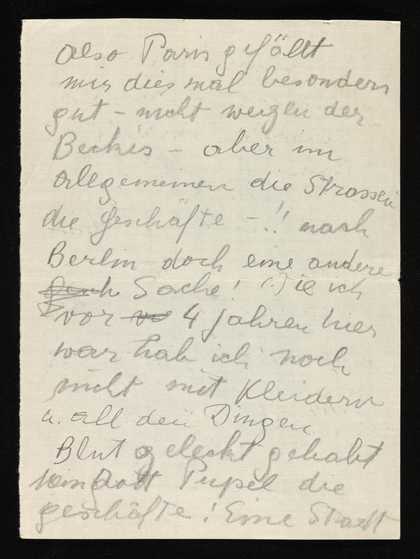 also Paris gefällt
mir diesmal besonders
gut – nicht wegen der
Beckis – aber im
allegemeinen die Strassen
die Geschäfte –!! nach
Berlin doch eine andere
Sache! ie ich
vor 4 Jahren hier
war hab ich noch
nicht mit Kleidern
u. all den Dingen
Blut geleckt gehabt
Gott Pupel die
geschäfte! Eine Stadt